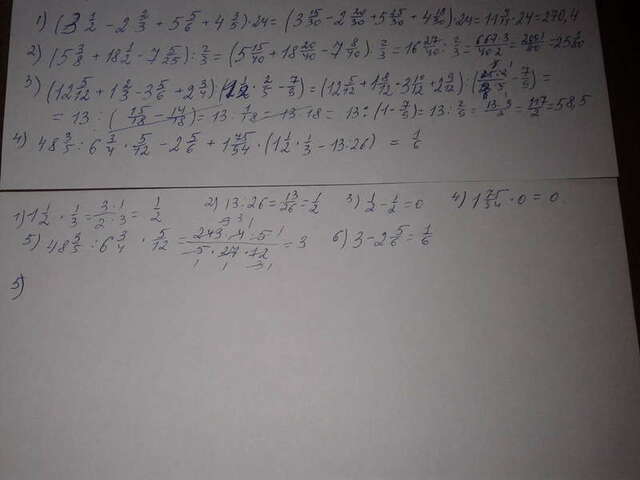 1) (3 1/2 - 2 2/3 + 5 5/6 + 4 3/5) · 24 = (3 15/30 - 2 20/30 + 5 25/30 + 4 18/30) · 24 = 11 · 24 = 270,4
2) (5 3/8 + 18 1/2 - 7 5/25) : 2/3 = (5 15/40 + 18 20/40 - 7 8/40) : 2/3 = 16 27/40 : 2/3 = 667·3/40·2 = 2001/80 = 25 1/80
3) (12 5/12 + 1 2/3 - 3 5/6 + 2 3/4) : ( · 2/5 - 7/9) = (12 5/12 + 1 8/12 - 3 10/12 + 2 9/12) : ( - 7/9) =
= 13 : (15/18 - 14/18) = 13 : 1/18 = 13·18 = 13 : (1 - 7/9) = 13 : 2/9 = 13·9/2 = 117/2 = 58,5
4) 48 3/5 : 6 3/4 · 5/12 - 2 5/6 + 1 75/54 · (1 1/2 · 1/3 - 13:26) = 1/6
1) 1 1/2 · 1/3 = 3·1/2·3 = 1/2
2) 13:26 = 13/26 = 1/2
3) 1/2 - 1/2 = 0
4) 1 75/54 · 0 = 0
5) 48 3/5 : 6 3/4 · 5/12 = 243·4·5/5·27·12 = 3
6) 3 - 2 5/6 = 1/6
5)